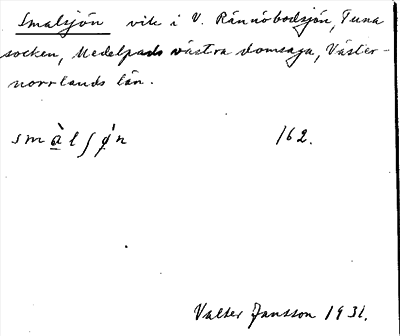 Smalsjön vik i V. Rännöbodsjön, Tuna
socken, Medelpads västra domsaga, Väster-
norrlands län.
smὰlʃǿn 162.
Valter Jansson 1931.